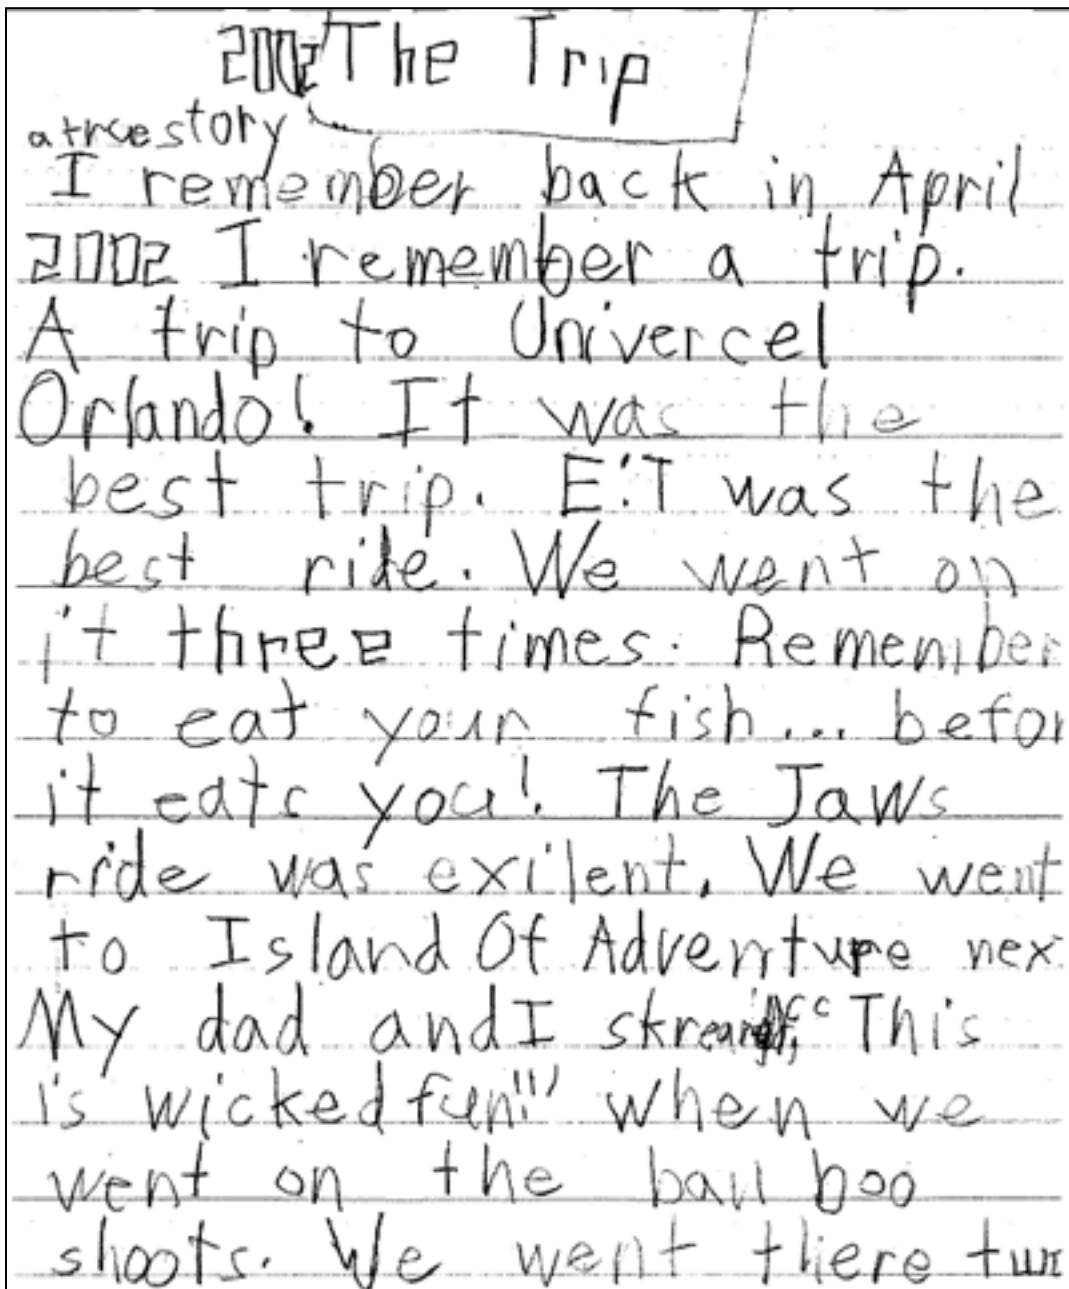 2002 The Trip
a true story
I remember back in April
2002 I remember a trip.
A trip to Univercel
Orlando! It was the
best trip. E.T was the
best ride. We went on
it three times. Remember
to eat your fish... befor
it eats you! The Jaws
ride was exilent. We went
to Island Of Adventure nex
My dad and I This
is wicked fun!!!" when we
went on the bau boo
shoots. We went there